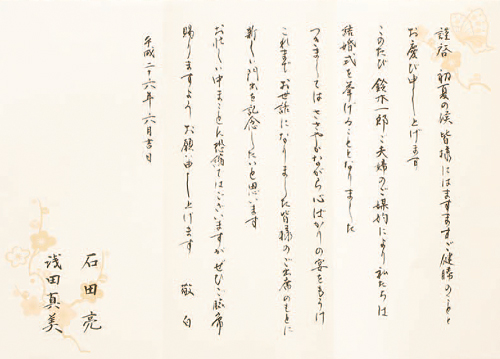 謹啓 初夏の候 皆様にはますますご健勝のことと
お慶び申し上げます
このたび 鈴木一郎ご夫婦のご媒酌により私たちは
結婚式を挙げることとなりました
つきましては ささやかながら心ばかりの宴をもうけ
これまでお世話になりました皆様のご出席のもとに
新しい門出を記念したいと思います
お忙しい中まことに恐縮ではございますがぜひご臨席
賜りますよう お願い申し上げます 敬白
平成二十六年六月吉日
石田亮
浅田真美